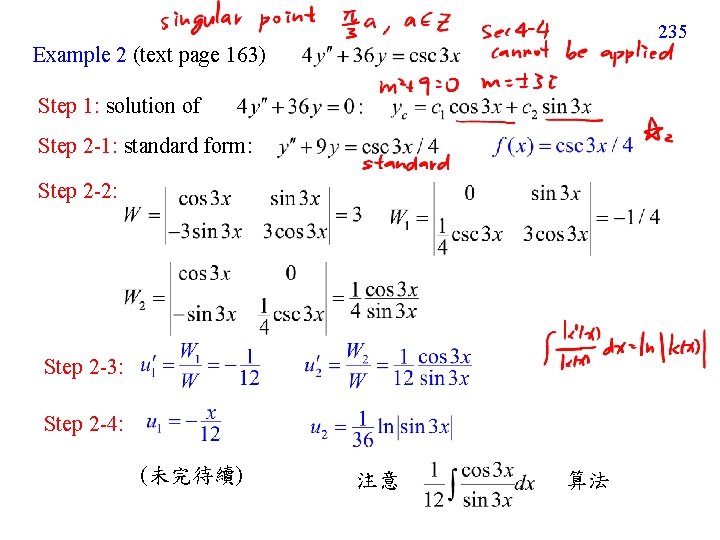 singular point π/3 a, a∈Z sec 4-4 235
Example 2 (text page 163) 4y″ + 36y = csc 3x cannot be applied
m²+9=0 m=±3i
Step 1: solution of 4y″ + 36y = 0 : y_c = c₁ cos 3x + c₂ sin 3x
Step 2-1: standard form: y″ + 9y = csc 3x / 4 f(x) = csc 3x / 4 ☆₂
standard
Step 2-2: W = |cos 3x sin 3x; −3 sin 3x 3 cos 3x| = 3 W₁ = |0 sin 3x; 1/4 csc 3x 3 cos 3x| = −1/4
W₂ = |cos 3x 0; −sin 3x 1/4 csc 3x| = 1/4 cos 3x / sin 3x
∫ k'(x)/k(x) dx = ln|k(x)|
Step 2-3: u₁′ = W₁/W = −1/12 u₂′ = W₂/W = 1/12 cos 3x / sin 3x
Step 2-4: u₁ = −x/12 u₂ = 1/36 ln|sin 3x|
(未完待續) 注意 1/12 ∫ cos 3x / sin 3x dx 算法